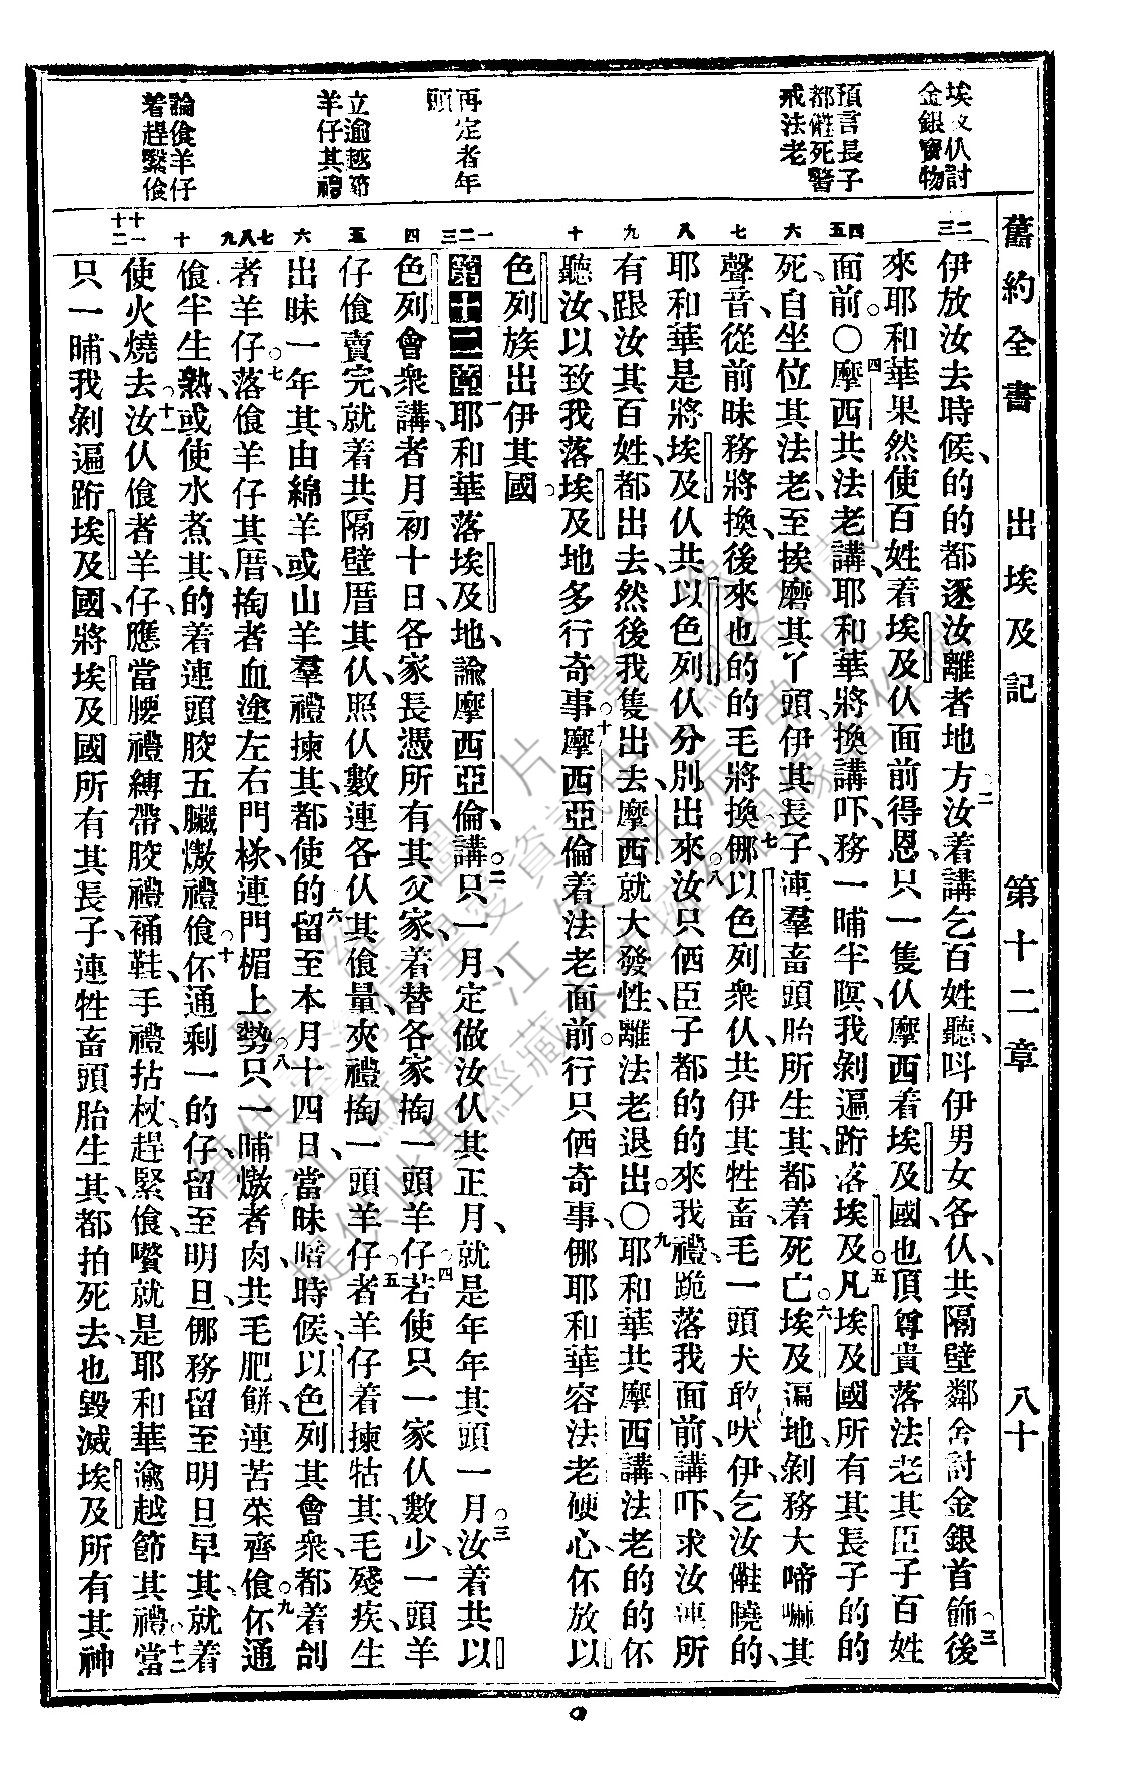 舊約全書 出埃及記 第十二章 八十
埃及仈討
金銀寳物
預言長子
都儺死警
戒法老
再定者年
頭
立逾越節
羊仔其禮
論飡羊仔
着趕緊飡
二三
四五
六
七
八
九
十
一二三
四
五
六
七八九
十
十一十二
伊放汝去時候、的的都逐汝離者地方、二汝着講乞百姓聽、呌伊男女各仈、共隔壁鄰舍討金銀首飾、三後
來耶和華果然使百姓着埃及仈面前得恩、只一隻仈摩西着埃及國、也頂尊貴落法老其臣子百姓
面前。〇四摩西共法老講、耶和華將換講吓、務一晡半暝、我剝遍跡落埃及、五凡埃及國所有其長子的的
死、自坐位其法老、至挨磨其丫頭、伊其長子、連羣畜頭胎所生其、都着死亡。六埃及遍地、剝務大啼嘛其
聲音、從前昧務將換、後來也的的毛將換。七㑚以色列衆仈共伊其牲畜、毛一頭犬敢吠伊、乞汝儺曉的、
耶和華是將埃及仈共以色列仈分別出來。八汝只㑚臣子都的的來我禮、跪落我面前、講吓、求汝連所
有跟汝其百姓、都出去、然後我隻出去、摩西就大發性、離法老退出。〇九耶和華共摩西講、法老的的伓
聽汝、以致我落埃及地多行奇事。十摩西亞倫着法老面前、行只㑚奇事、㑚耶和華容法老硬心、伓放以
色列族出伊其國。
第十二章 一耶和華落埃及地、論摩西亞倫講、二只一月定做汝仈其正月、就是年年其頭一月。三汝着共以
色列會衆講、者月初十日、各家長憑所有其父家、着替各家掏一頭羊仔、四若使只一家仈數少、一頭羊
仔飡賣完、就着共隔壁厝其仈、照仈數連各仈其飡量、夾禮掏一頭羊仔。五者羊仔着揀牯其、毛殘疾、生
出昧一年其、由綿羊或山羊羣禮揀其、都使的、六留至本月十四日、當昧暗時候、以色列其會衆、都着刣
者羊仔。七落飡羊仔其厝、掏者血塗左右門栨、連門楣上勢。八只一晡、燩者肉、共毛肥餠、連苦菜齊飡、九伓通
飡半生熟、或使水煮其、的着連頭骹五臟燩禮飡。十伓通剩一的仔留至明旦、㑚務留至明旦早其、就着
使火燒去。十一汝仈飡者羊仔、應當腰禮縛帶、骹禮䄮鞋、手禮拈杖、趕緊飡囋、就是耶和華逾越節其禮。十二當
只一晡、我剝遍跡埃及國、將埃及國所有其長子、連牲畜頭胎生其、都拍死去、也毀滅埃及所有其神